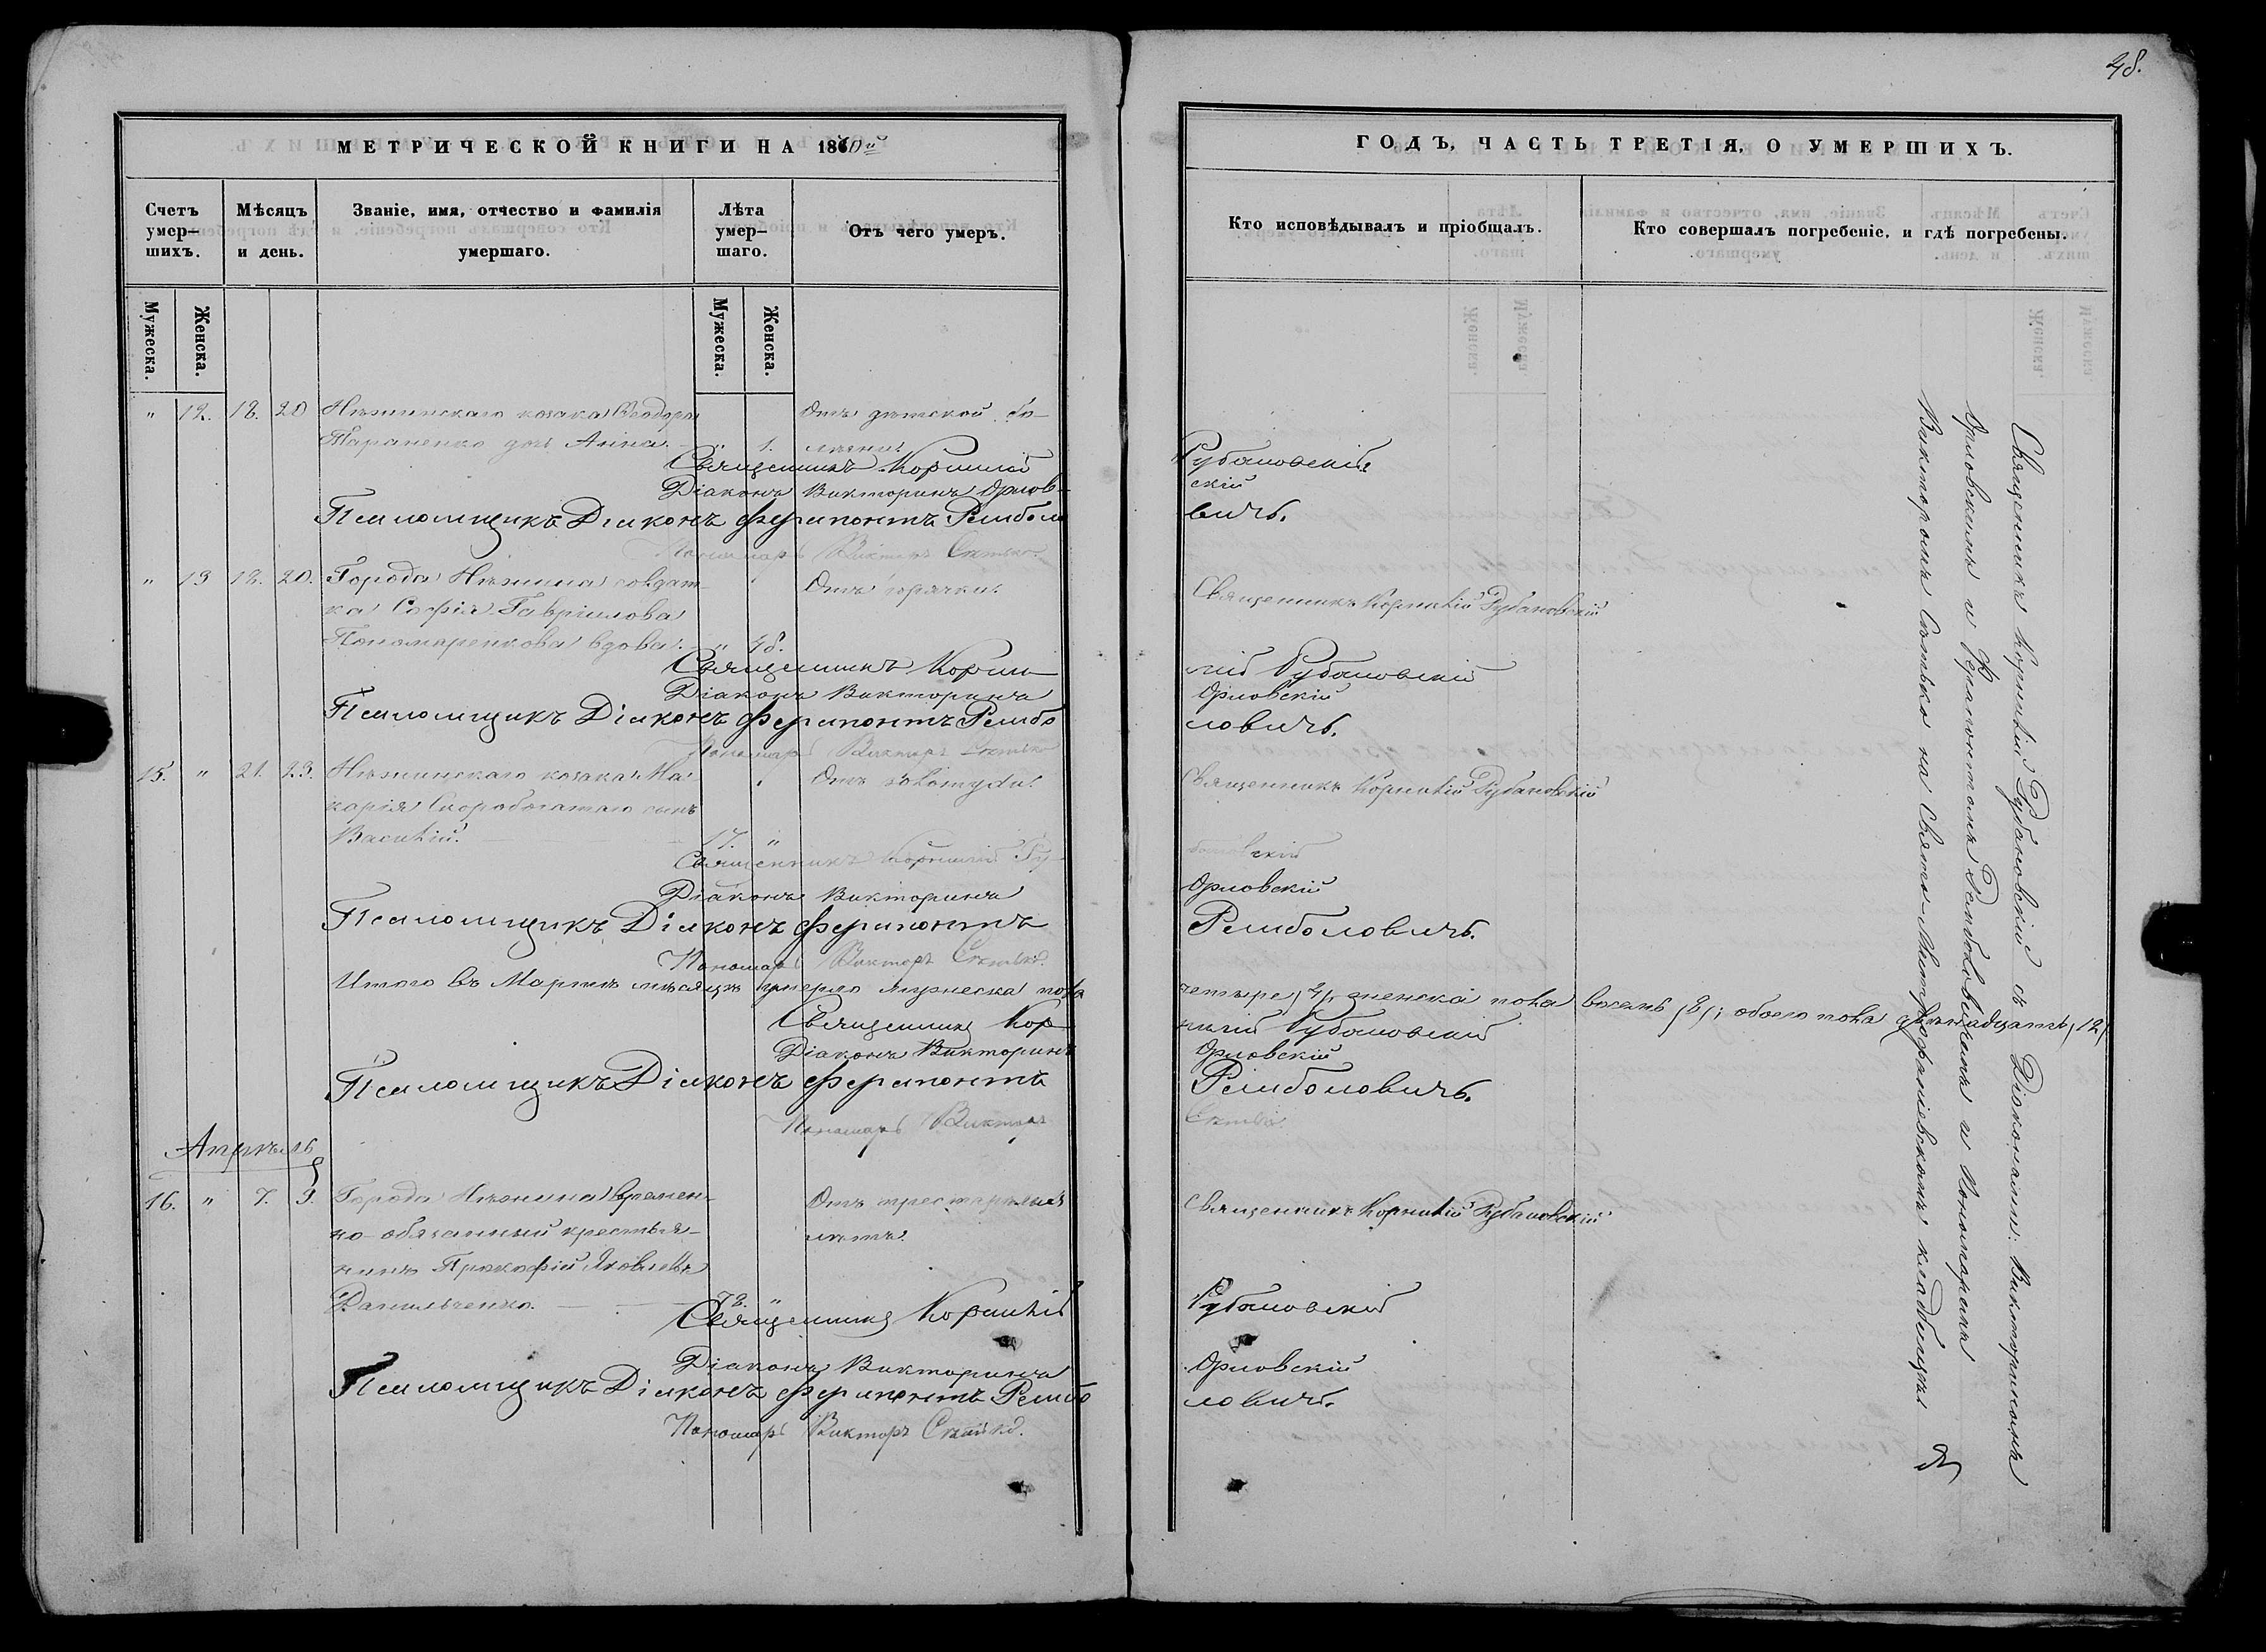 48.
МЕТРИЧЕСКОЙ КНИГИ НА 1870й
ГОДЪ, ЧАСТЬ ТРЕТІЯ, О УМЕРШИХЪ.
Счетъ умер–шихъ.
Мѣсяцъ и день.
Званіе, имя, отчество и фамилія умершаго.
Лѣта умер–шаго.
Отъ чего умеръ.
Кто исповѣдывалъ и пріобщалъ.
Кто совершалъ погребеніе, и гдѣ погребены.
Мужеска.
Женска.
Мужеска.
Женска.
" 12. 18. 20 Нѣжинскаго козака Ѳеодора Отъ дѣтской бо-
Тараненко дочь Анна. " 1. лѣзни.
Священникъ Корнилій Рубановскій
Діаконъ Викторинъ Орловскій
Псаломщикъ Діаконъ Ферапонтъ Ремболовичъ.
Пономарь Викторъ
" 13 18. 20. Города Нѣжина солдат- Отъ горячки. Священникъ Корнилій Рубановскій
ка Софія Гавріилова
Пономаренкова вдова. " 48.
Священникъ Корнилій Рубановскій
Діаконъ Викторинъ Орловскій
Псаломщикъ Діаконъ Ферапонтъ Ремболовичъ.
Пономарь Викторъ
15. " 21. 23. Нѣжинскаго козака Ма- Отъ золотухи. Священникъ Корнилій Рубановскій
карія Скоробогатаго сынъ
Василій. 17. "
Священникъ Корнилій Рубановскій
Діаконъ Викторинъ Орловскій
Псаломщикъ Діаконъ Ферапонтъ Ремболовичъ.
Пономарь Викторъ
Итого въ Мартѣ мѣсяцѣ умерло мужеска пола четыре /4/, женска пола восемь /8/; обоего пола двѣнадцать /12/
Священникъ Корнилій Рубановскій
Діаконъ Викторинъ Орловскій
Псаломщикъ Діаконъ Ферапонтъ Ремболовичъ.
Пономарь Викторъ
Апрѣль
16. " 7. 9. Города Нѣжина времен- Отъ престарѣлыхъ Священникъ Корнилій Рубановскій
но-обязанный крестья- лѣтъ.
нинъ Прокофій Яковлевъ
Данильченко. 78. "
Священникъ Корнилій Рубановскій
Діаконъ Викторинъ Орловскій
Псаломщикъ Діаконъ Ферапонтъ Ремболовичъ.
Пономарь Викторъ
Священникъ Корнилій Рубановскій съ Діаконами: Викториномъ
Орловскимъ и Ферапонтомъ Ремболовичемъ и Пономаремъ
Викторомъ на кладбищѣ